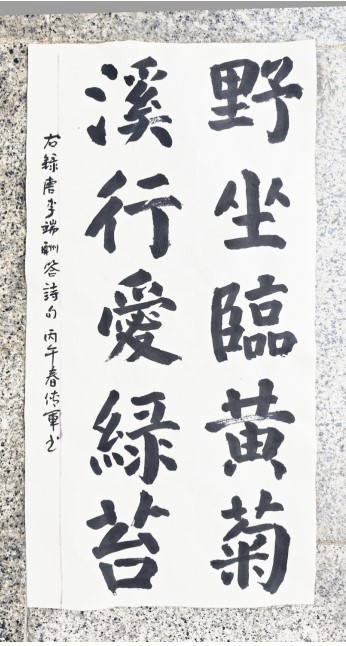 野坐臨黄菊
溪行愛緑苔
右録唐李端酬答詩句丙午春傳軍书